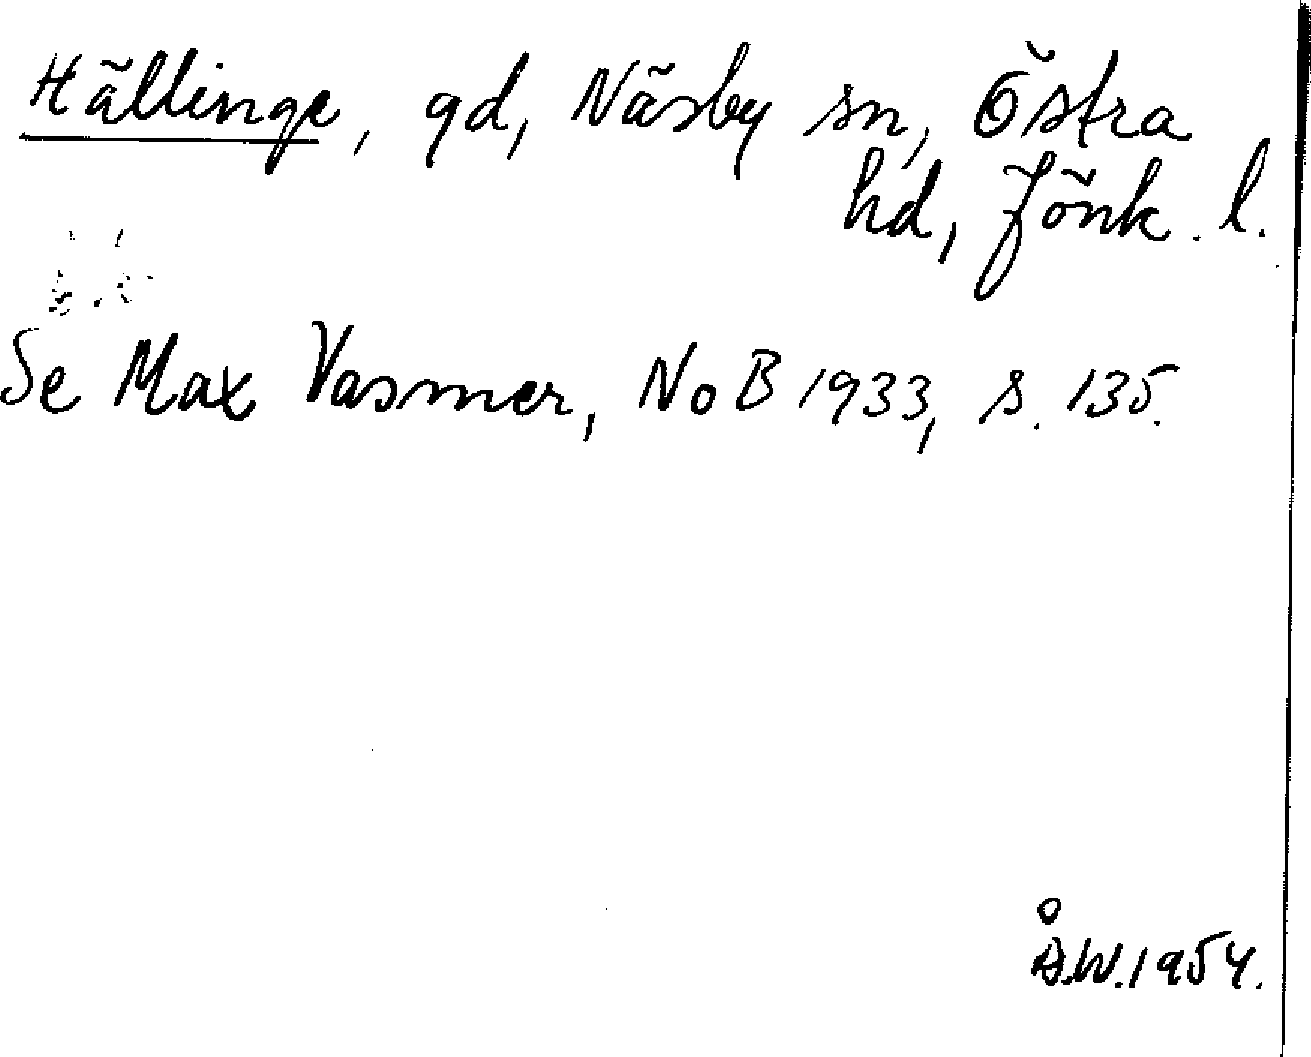 Hällinge, gd, Näsby sn, Östra
hd, Jönk. l.
Se Max Vasmer, NoB 1933, s. 135.
Å.W. 1954.